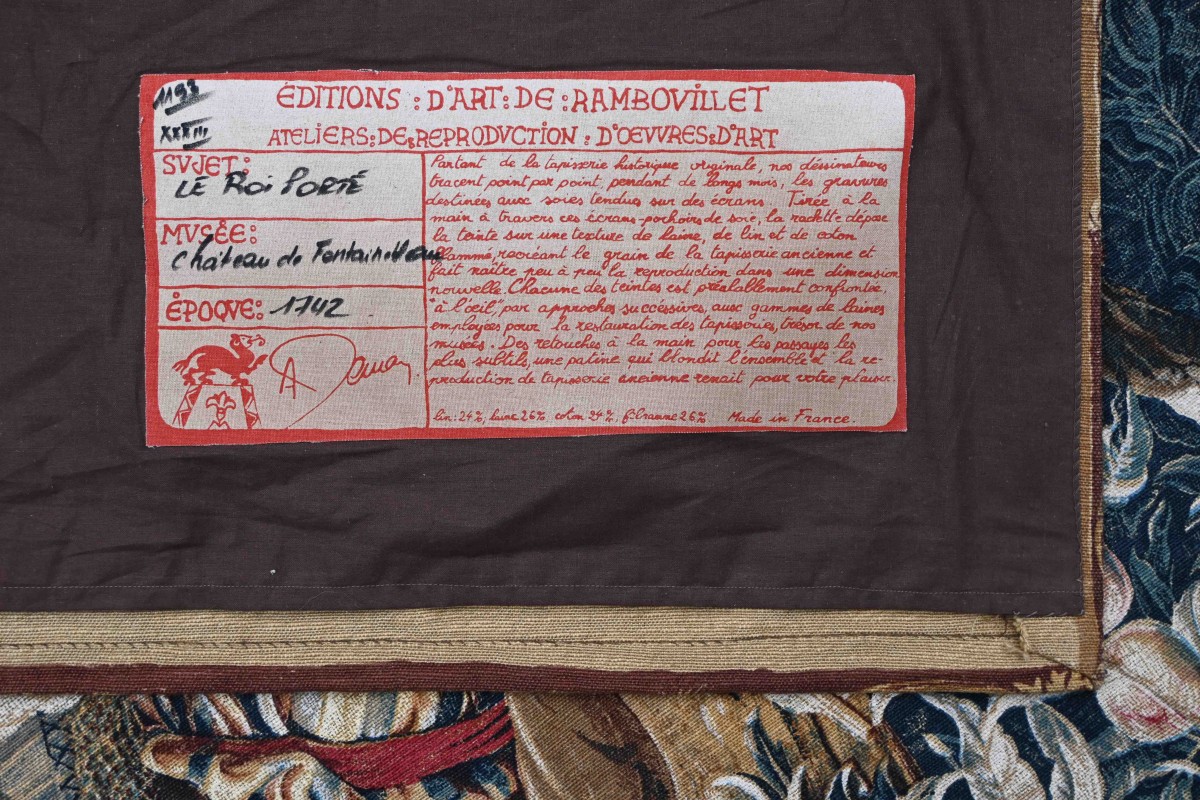 1193
XXXIII
ÉDITIONS : D'ART : DE : RAMBOVILLET
ATELIERS : DE : REPRODVCTION : D'ŒVVRES : D'ART
SVJET :
LE ROI PORTÉ
MVSÉE :
Château de Fontainebleau
ÉPOQVE : 1742
Partant de la tapisserie historique originale, nos déssinateurs
tracent point par point, pendant de longs mois, les gravures
destinées aux soies tendues sur des écrans. Tirée à la
main à travers ces écrans-pochoirs de soie, la raclette dépose
la teinte sur une texture de laine, de lin et de coton
flammé, recréant le grain de la tapisserie ancienne et
fait naître peu à peu la reproduction dans une dimension
nouvelle. Chacune des teintes est préalablement confrontée,
"à l'œil", par approches successives, aux gammes de laines
employées pour la restauration des tapisseries, trésor de nos
musées. Des retouches à la main pour les passages les
plus subtils, une patine qui blondit l'ensemble et la re-
production de tapisserie ancienne renait pour votre plaisir.
lin : 24%, laine 26% coton 24%, fibranne 26% Made in France.